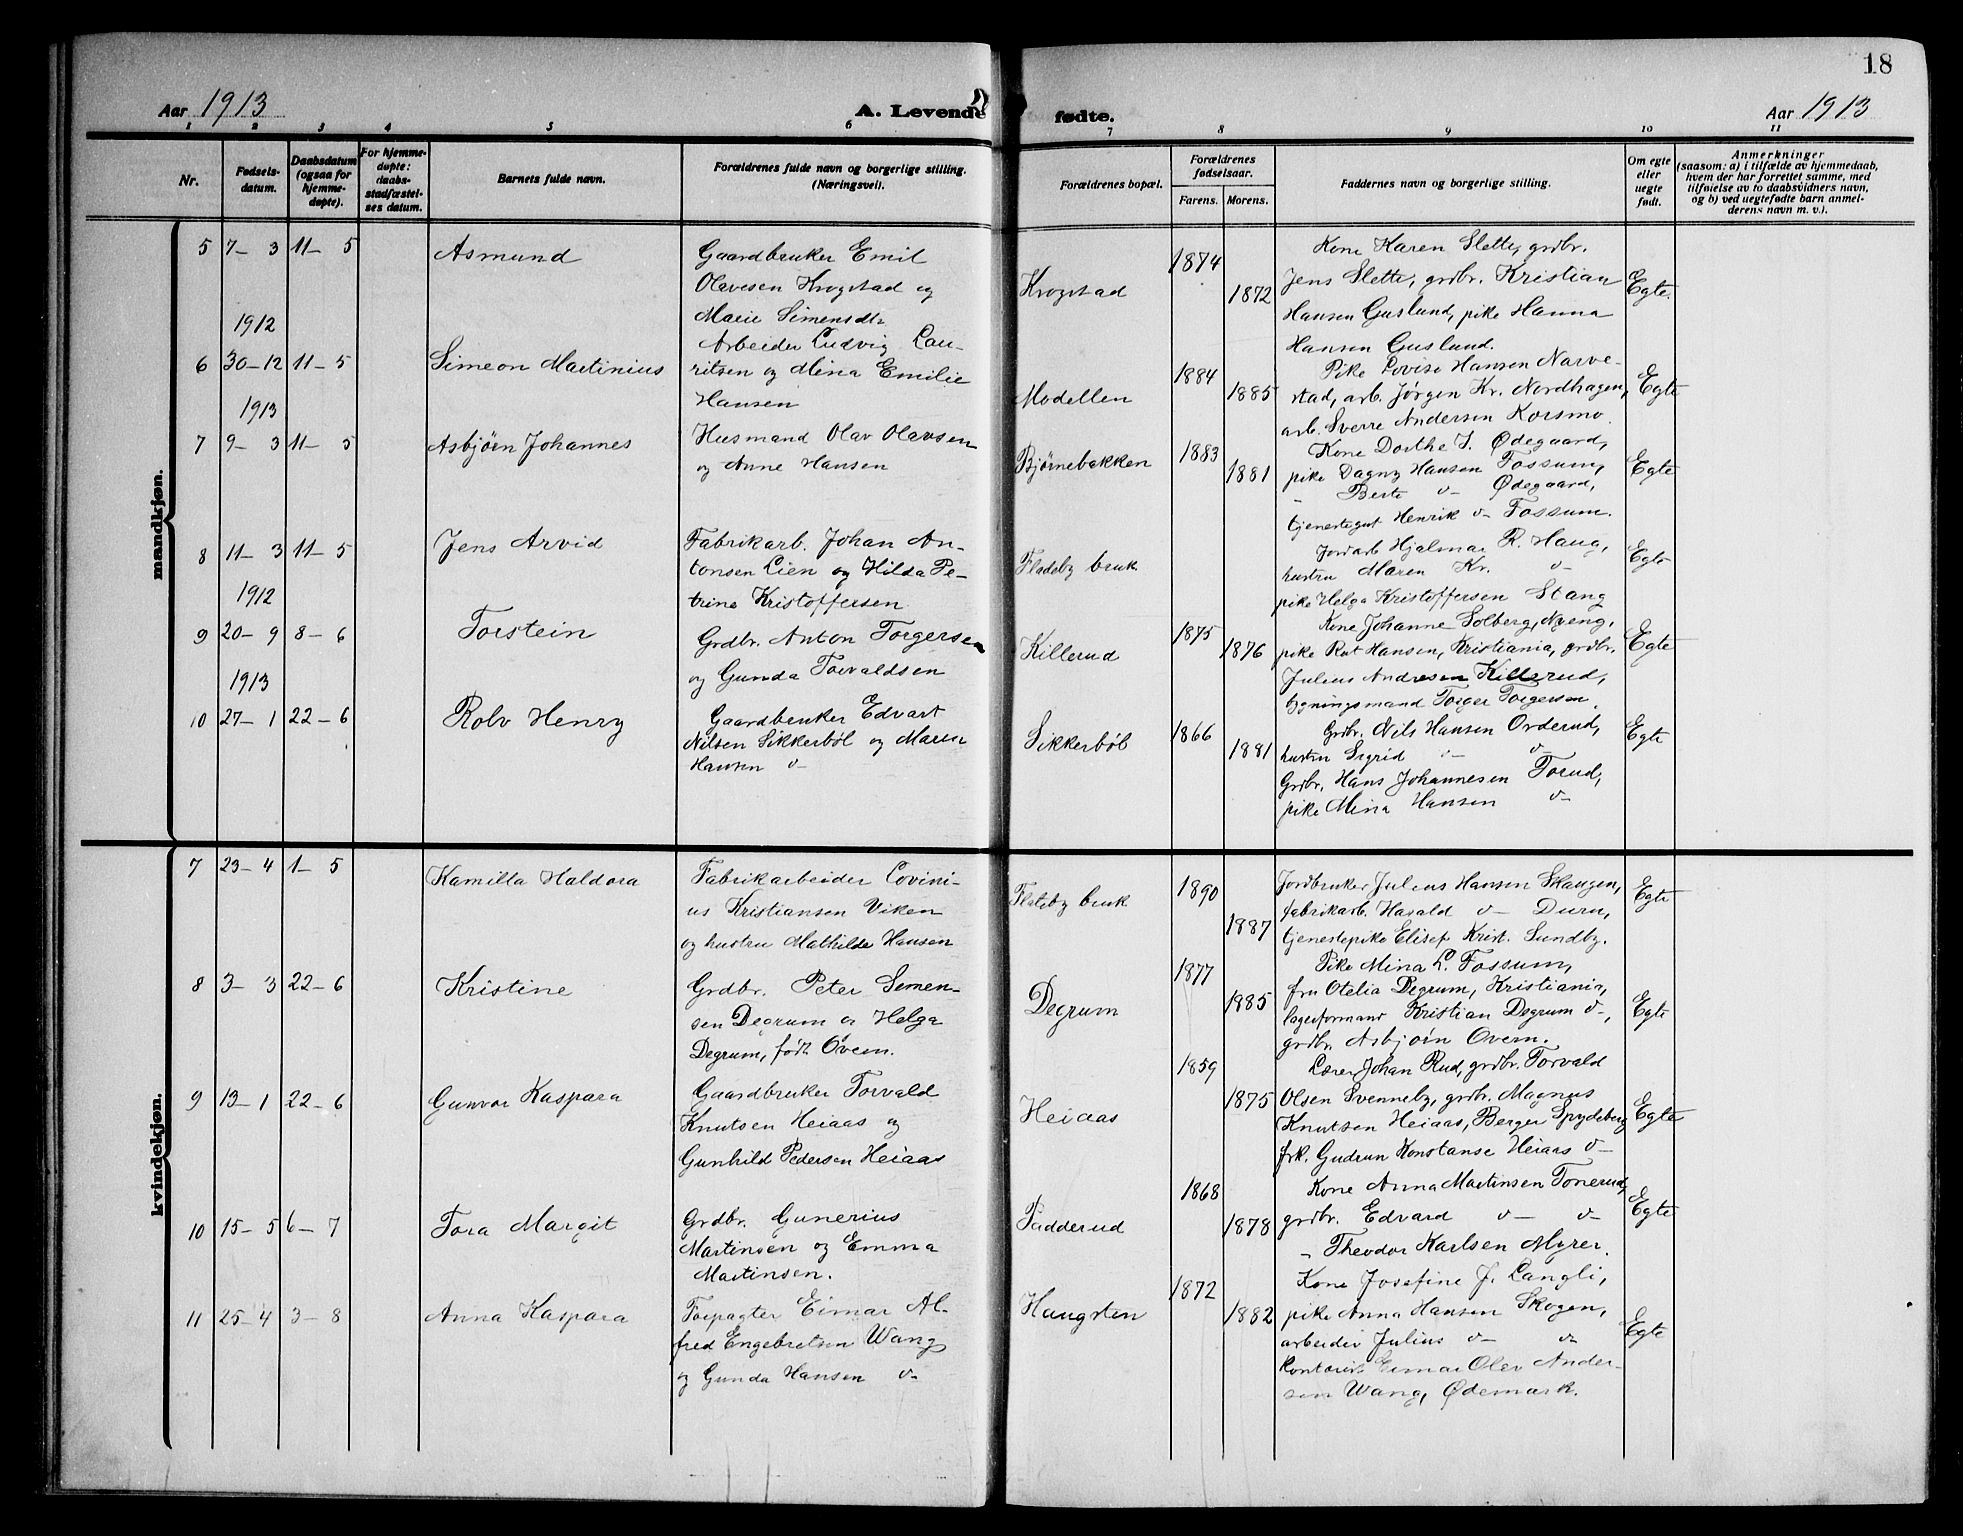 18
Aar 1913
A. Levende fødte.
Aar 1913
1 2 3 4 5 6 7 8 9 10 11
Nr.
Fødsels-
datum.
Daabsdatum
(ogsaa for
hjemme-
døpte).
For hjemme-
døpte:
daabs-
stadfæstel-
ses datum.
Barnets fulde navn.
Forældrenes fulde navn og borgerlige stilling.
(Næringsvei).
Forældrenes bopæl.
Forældrenes
fødselsaar.
Farens. Morens.
Faddernes navn og borgerlige stilling.
Om egte
eller
uegte
født.
Anmerkninger
(saasom: a) i tilfælde av hjemmedaab,
hvem der har forrettet samme, med
tilføielse av to daabsvidners navn,
og b) ved uegtefødte barn anmel-
derens navn m. v.).
mandkjøn.
5 7–3 11–5
Asmund
Gaardbruker Emil
Olavesen Krogstad og
Marie Simensdtr
Krogstad
1874
1872
Kone Karen Slette, grdbr.
Jens Slette, grdbr. Kristian
Hansen Guslund, pike Hanna
Hansen Guslund.
Egte.
1912
6 30–12 11–5
Simeon Martinius
Arbeider Ludvig Lau-
ritsen og Mina Emilie
Hansen
Modellen
1884
1885
Pike Lovise Hansen Narve-
stad, arb. Jørgen Kr. Nordhagen,
arb. Sverre Andersen Korsmo.
Egte
1913
7 9–3 11–5
Asbjørn Johannes
Husmand Olav Olavsen
og Anne Hansen
Bjørnebakken
1883
1881
Kone Dorthe J. Ødegaard,
pike Dagny Hansen Fossum,
" Berte v– Ødegaard,
tjenestegut Henrik v– Fossum.
Egte
8 11–3 11–5
Jens Arvid
Fabrikarb. Johan An-
tonsen Lien og Hilda Pe-
trine Kristoffersen
Fladeby bruk
Jordarb Hjalmar R. Haug,
hustru Maren Kr. v–
pike Helga Kristoffersen Stang
Egte
1912
9 20–9 8–6
Torstein
Grdbr. Anton Torgersen
og Gunda Torvaldsen
Killerud
1875
1876
Kone Johanne Solberg,
pike Rut Hansen, Kristiania, grdbr.
Julius Andresen Killerud,
bygningsmand Torger Torgersen.
Egte
1913
10 27–1 22–6
Rolv Henry
Gaardbruker Edvart
Nilsen Sikkerbøl og Maren
Hansen v–
Sikkerbøl
1866
1881
Grdbr. Nils Hansen Orderud,
hustru Sigrid v– v–
Grdbr. Hans Johannesen Torud,
pike Mina Hansen v–
Egte
kvindekjøn.
7 23–4 1–5
Kamilla Haldora
Fabrikarbeider Lovini-
us Kristiansen Viken
og hustru Mathilde Hansen
Flateby bruk
1890
1887
Jordbruker Julius Hansen Skaugen,
fabrikarb. Harald v– Durn,
tjenestepike Elisef Krist. Sundby.
Egte
8 3–3 22–6
Kristine
Grdbr. Peter Semen-
sen Degrum og Helga
Degrum, født Overn.
Degrum
1877
1885
Pike Mina L. Fossum,
fru Otelia Degrum, Kristiania,
lagerformand Kristian Degrum v–,
grdbr. Asbjørn Overn.
Egte
9 13–1 22–6
Gunvor Kaspara
Gaardbruker Torvald
Knutsen Heiaas og
Gunhild Pedersen Heiaas
Heiaas
1859
1875
Lærer Johan Rud, grdbr. Torvald
Olsen Svenneby, grdbr. Magnus
Knutsen Heiaas, Berger Spydeberg
frk. Gudrun Konstanse Heiaas v–
Egte
10 15–5 6–7
Tora Margit
Grdbr. Gunerius
Martinsen og Emma
Martinsen.
Fadderud
1868
1878
Kone Anna Martinsen Tonerud,
grdbr. Edvard v– v–
" Theodor Karlsen Myrer.
Egte
11 25–4 3–8
Anna Kaspara
Forpagter Eimar Al-
fred Engebretsen Wang
og Gunda Hansen v–
Haugsten
1872
1882
Kone Josefine J. Langli,
pike Anna Hansen Skogen,
arbeider Julius v– v–
kontorist Eimar Olav Ander-
sen Wang, Ødemark.
Egte